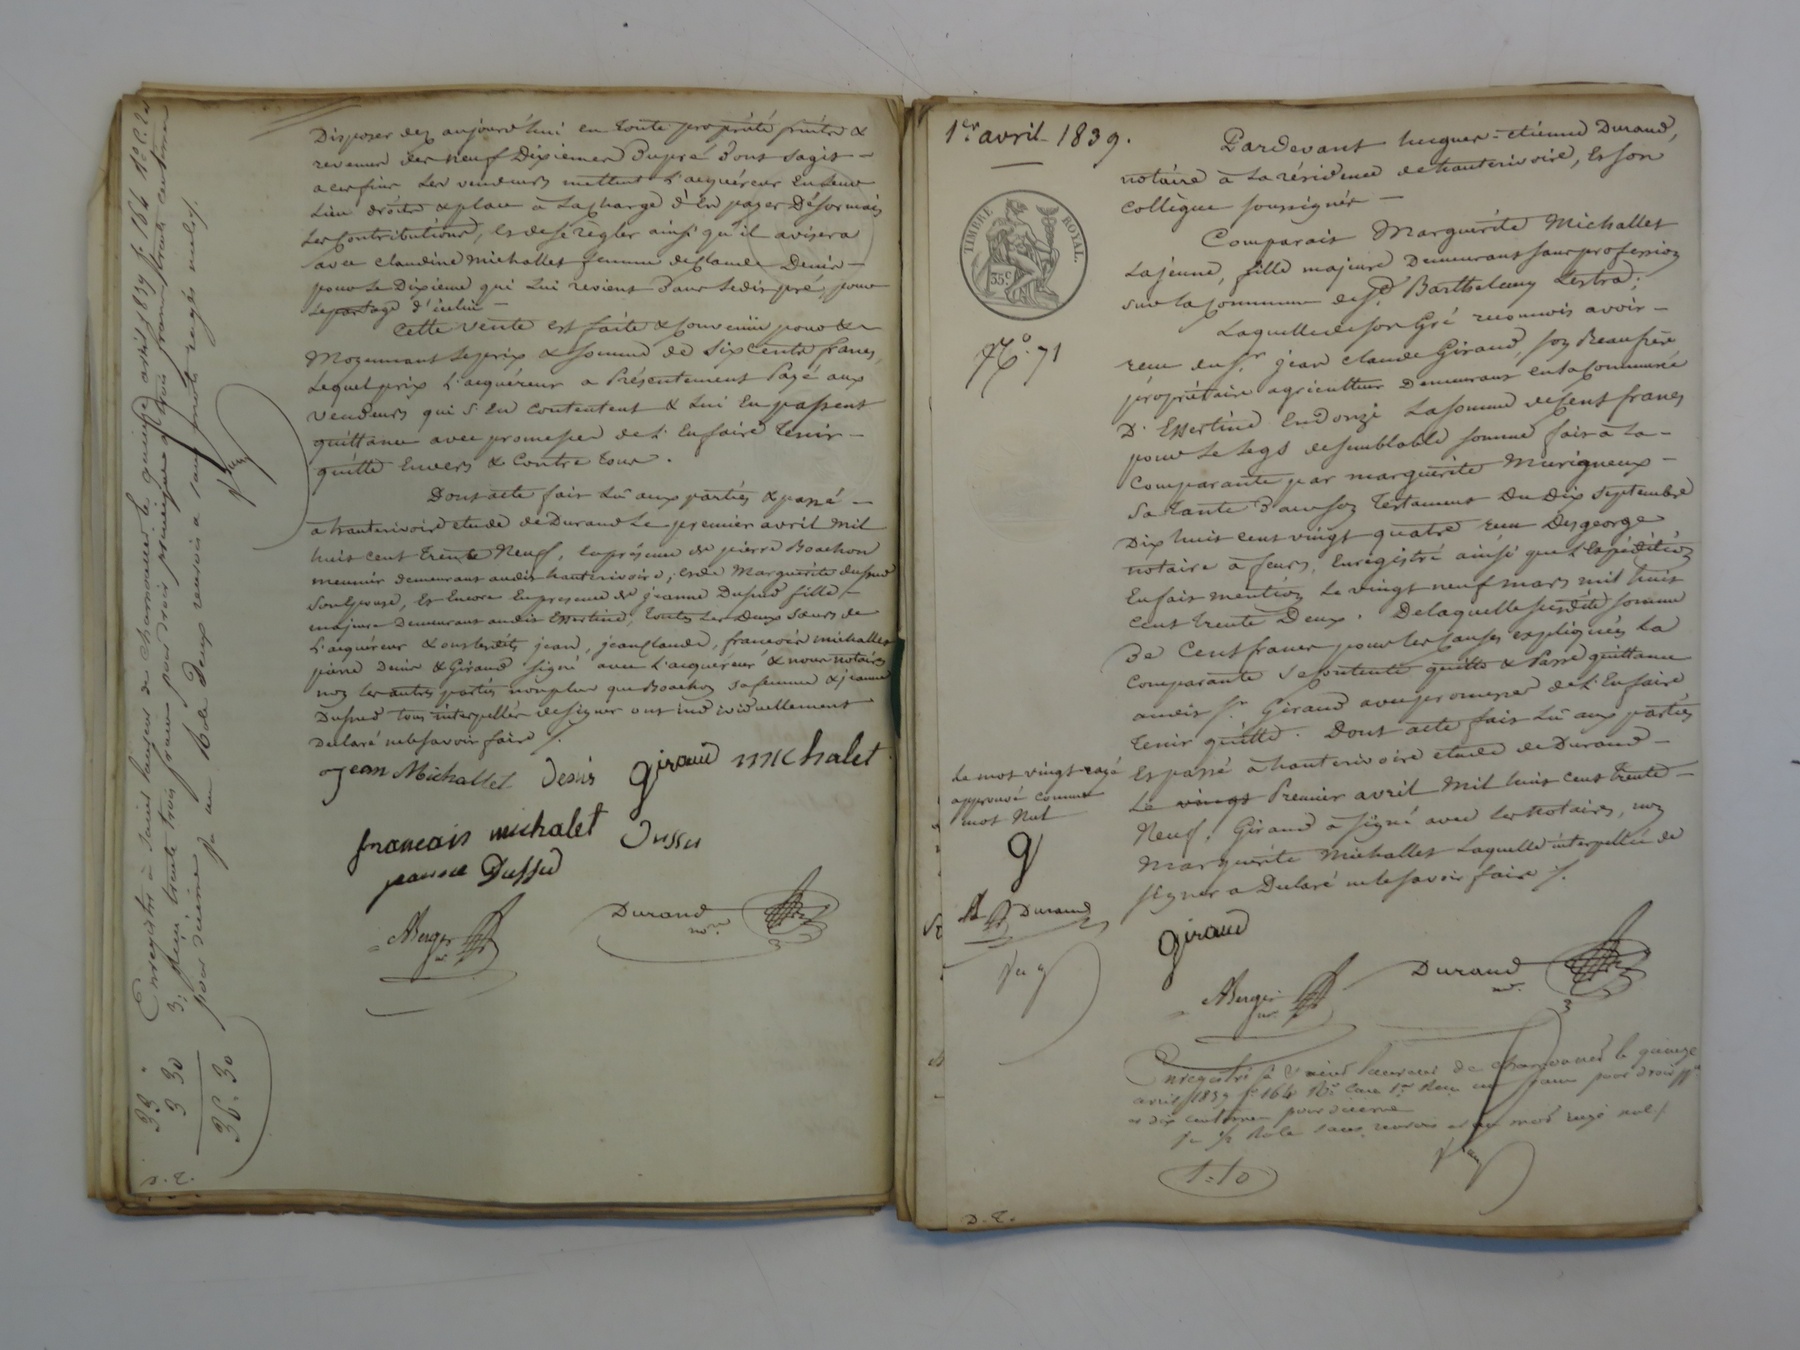 Disposer dez aujourd'hui en toute propriété fruits &
revenus des neuf Dixiemes Dupré dont sagit –
a ces fins les vendeurs mettent L'acquéreur En Leur
Lieu droits & place à Lacharge d'En payer Désormais
Les Contributions, et de se régler ainsi qu'il avisera
avec claudine Michallet femme de Claude Denis –
pour Le Dixieme qui Lui revient Dans Ledit pré, pour
Le partage d'icelui –
Cette vente est faite & convenue pour &
Moyennant Le prix & somme de Six Cents francs,
Lequel prix L'acquéreur a Présentement Payé aux
vendeurs qui s'En Contentent & Lui En passent
quittance avec promesse de L'Enfaire Tenir –
quitte Envers & Contre Tous.
Dont acte fait Lû aux parties & passé –
à hauterivoire etude de Durand Le premier avril Mil
huit cent Trente Neuf, En présence de pierre Boachon
meunier demeurant audit hauterivoire, et de Marguerite Dussud
Son Epouse, Et Encore En presence de jeanne Dussud fille –
majeure Demeurant audit Essertine, toutes Les Deux Sœurs de
L'acquéreur & ont Lesdits jean, jean Claude, francois michallet
pierre Denis & Giraud signé avec L'acquéreur & nous notaires
non les autres parties non plus que Boachon sa femme & jeanne
Dussud tous interpellés de signer ont individuellement
Déclaré ne le savoir faire /.
Jean Michallet Denis giraud michalet
francois michalet Dussu
Dussud
ABerger
nre
Durand
nre
Enregistré à Saint Laurent de Chamousset le quinze avril 1839 f. 164
pour décime
33 "
3 30
36. 30
D. E.
1er avril 1839.
TIMBRE ROYAL.
35 c
No. 71
Pardevant hugues-etienne Durand,
notaire à La résidence de hauterivoire, Et son
Collègue soussignés –
Comparait Marguerite Michallet
La jeune, fille majeure Demeurant sans profession
sur la Commune de St Barthelemy Lestra;
Laquelle de son Gré reconnoit avoir –
reçu du Sr jean Claude Giraud, son Beaufrère
propriétaire agriculteur Demeurant en La Commune
D'Essertine En Donzi La somme de Cent francs
pour Le Legs de semblable somme fait à La –
Comparante par marguerite Murigneux –
Sa tante Dans son Testament Du Dix Septembre
Dix huit cent vingt quatre reçu Desgeorge
notaire à feurs, Enregistré ainsi que L'Expédition
En fait mention Le vingt neuf mars mil huit
Cent trente Deux. De laquelle susdite somme
De Cent francs pour les causes expliquées La
Comparante se contente quitte & Passe quittance
audit Sr Giraud avec promesse de L'Enfaire
Tenir quitte. Dont acte fait Lû aux parties
Et passé à hauterivoire etude de Durand –
Le vingt Premier avril Mil huit cent trente –
Neuf, Giraud a signé avec Les Notaires, non
Marguerite Michallet Laquelle interpellée de
signer a Déclaré ne le savoir faire /.
Le mot vingt rayé
approuvé comme
mot Nul
g
Durand
giraud
ABerger
nre
Durand
nre
Enregistré à St Laurent de Chamousset le quinze
avril 1839 f. 164 Ro Case 1re Reçu un franc pour droit
et dix centimes pour décime
sans renvois et un mot rayé nul /.
1.10
D. E.